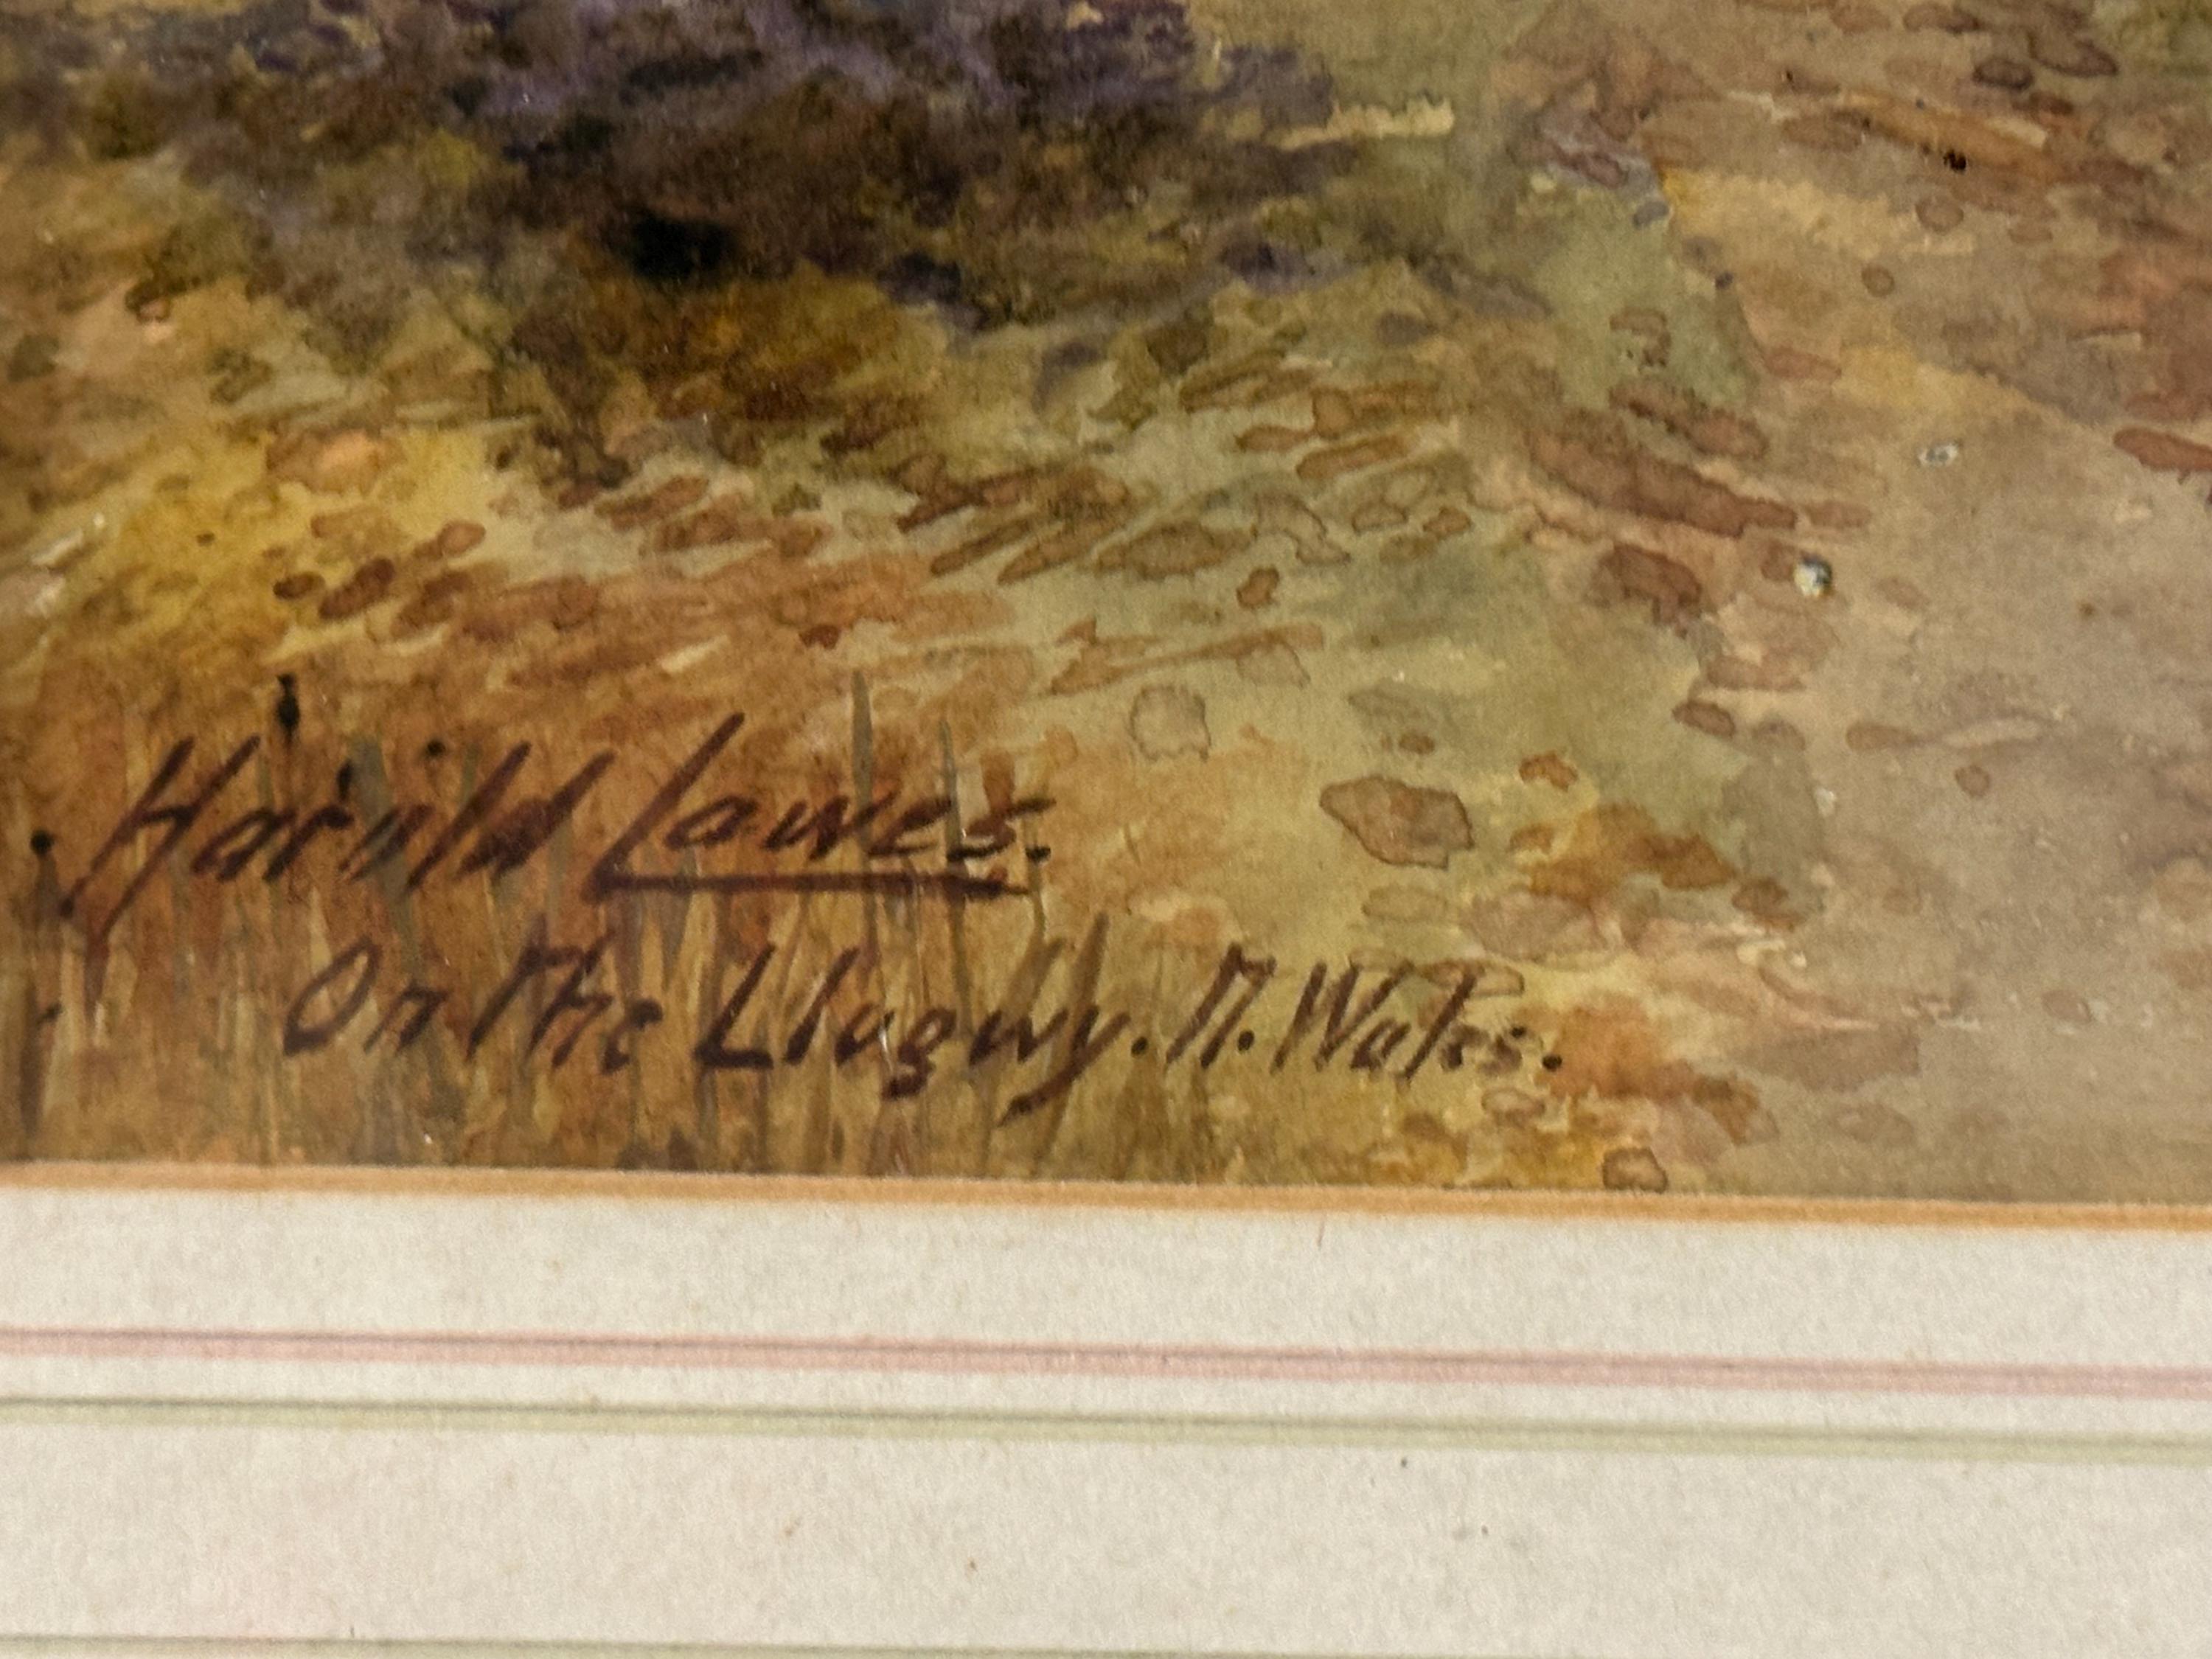 Harold Lawes.
On the Llugwy. N. Wales.